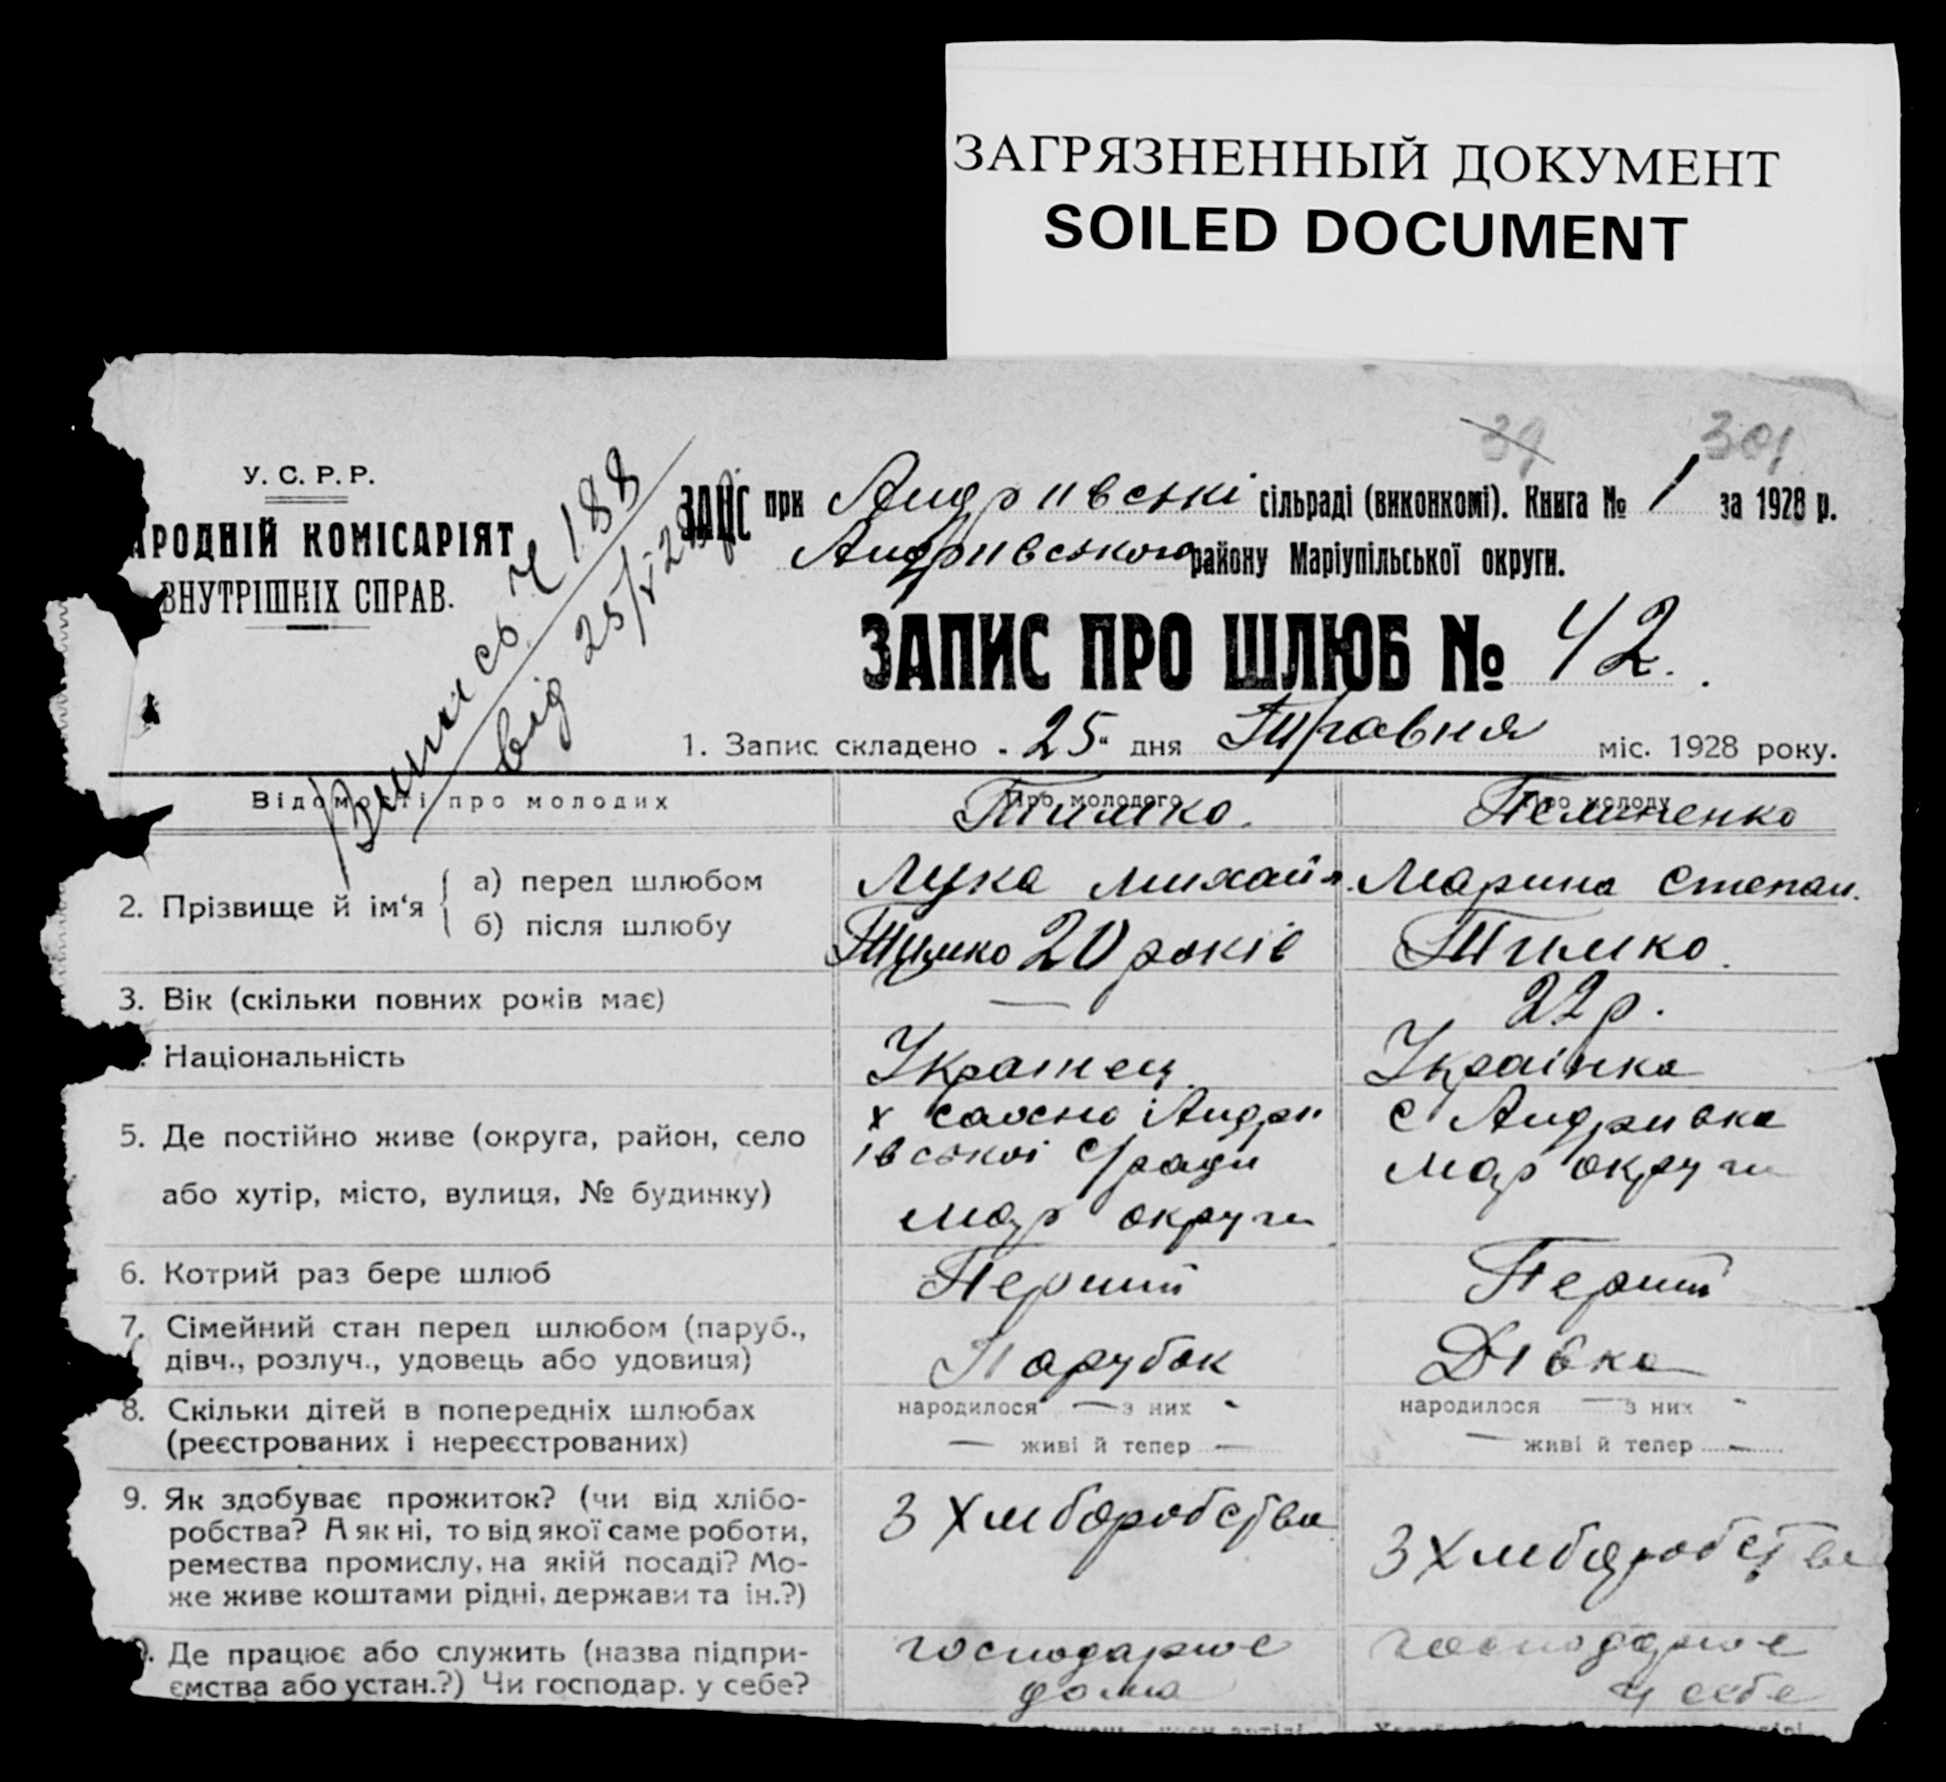 ЗАГРЯЗНЕННЫЙ ДОКУМЕНТ
SOILED DOCUMENT
39
301
У. С. Р. Р.
АРОДНІЙ КОМІСАРІЯТ
ВНУТРІШНІХ СПРАВ.
Випись Ч 188
від 25/V 28 р
ЗАГС при Андриівські сільраді (виконкомі). Книга № 1 за 1928 р.
Андриівського району Маріупільської округи.
ЗАПИС ПРО ШЛЮБ № 42.
1. Запис складено „25“ дня Травня міс. 1928 року.
Відомості про молодих
Про молодого
Тимко.
Про молоду
2. Прізвище й ім'я
а) перед шлюбом
Лука михайл.
Марина степан.
б) після шлюбу
Тимко 20 років
Тимко.
3. Вік (скільки повних років має)
—
22 р.
Національність
Украінец
Украінка
5. Де постійно живе (округа, район, село
або хутір, місто, вулиця, № будинку)
х Андри
івськоі с/ради
мар округи
с Андриівка
мар округи
6. Котрий раз бере шлюб
Перший
Перший
7. Сімейний стан перед шлюбом (паруб.,
дівч., розлуч., удовець або удовиця)
Парубок
Дівка
8. Скільки дітей в попередніх шлюбах
(реєстрованих і нереєстрованих)
народилося — з них -
— живі й тепер —
народилося — з них -
— живі й тепер —
9. Як здобуває прожиток? (чи від хлібо-
робства? А як ні, то від якої саме роботи,
ремества промислу, на якій посаді? Мо-
же живе коштами рідні, держави та ін.?)
З Хлиборобства
З Хлиборобства
Де працює або служить (назва підпри-
ємства або устан.?) Чи господар. у себе?
господарює
дома
господарює
у себе